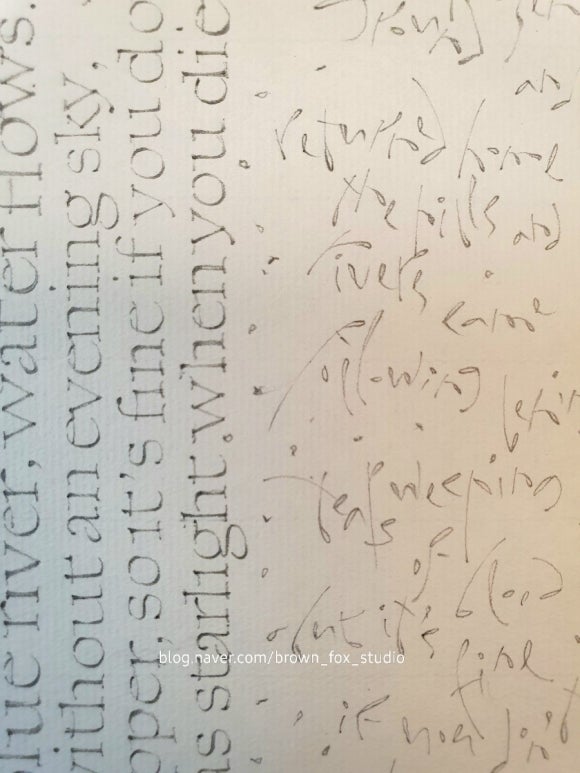 lue river, water flows.
ithout an evening sky,
pper, so it's fine if you do
as starlight. when you die
and
returned home
the hills and
rivers came
flowing
weeping
tears
of blood
but it's fine
if you don't
blog.naver.com/brown_fox_studio